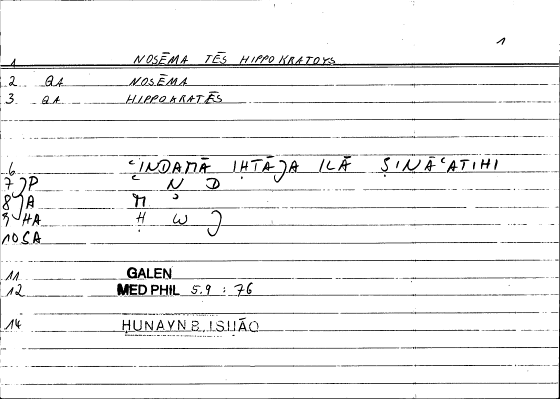 1
1 NOSĒMA TĒS HIPPOKRATOYS
2 QA NOSĒMA
3 QA HIPPOKRATĒS
6 ʿINDAMĀ IḤTĀJA ILĀ ṢINĀʿATIHI
7 JP ʿ N D
8 JA M ʾ
9 HA Ḥ W J
10 SA
11 GALEN
12 MED PHIL 5.9 : 76
14 ḤUNAYN B. ISḤĀQ